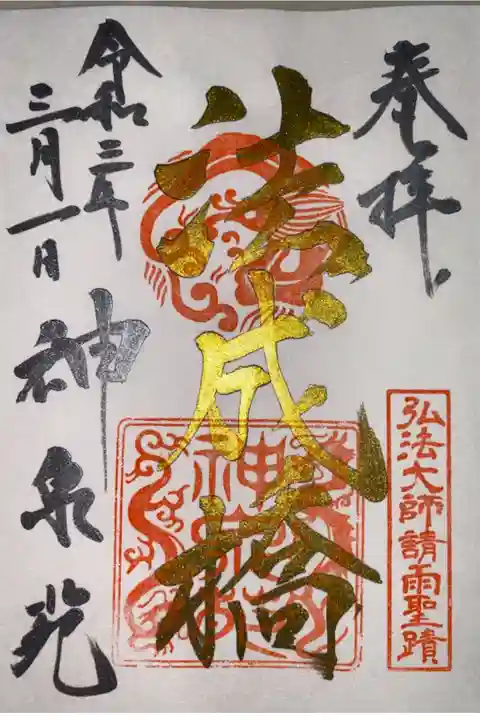 奉拝
弘法大師請雨聖蹟
法成橋
神泉苑
令和三年
三月一日
神泉苑